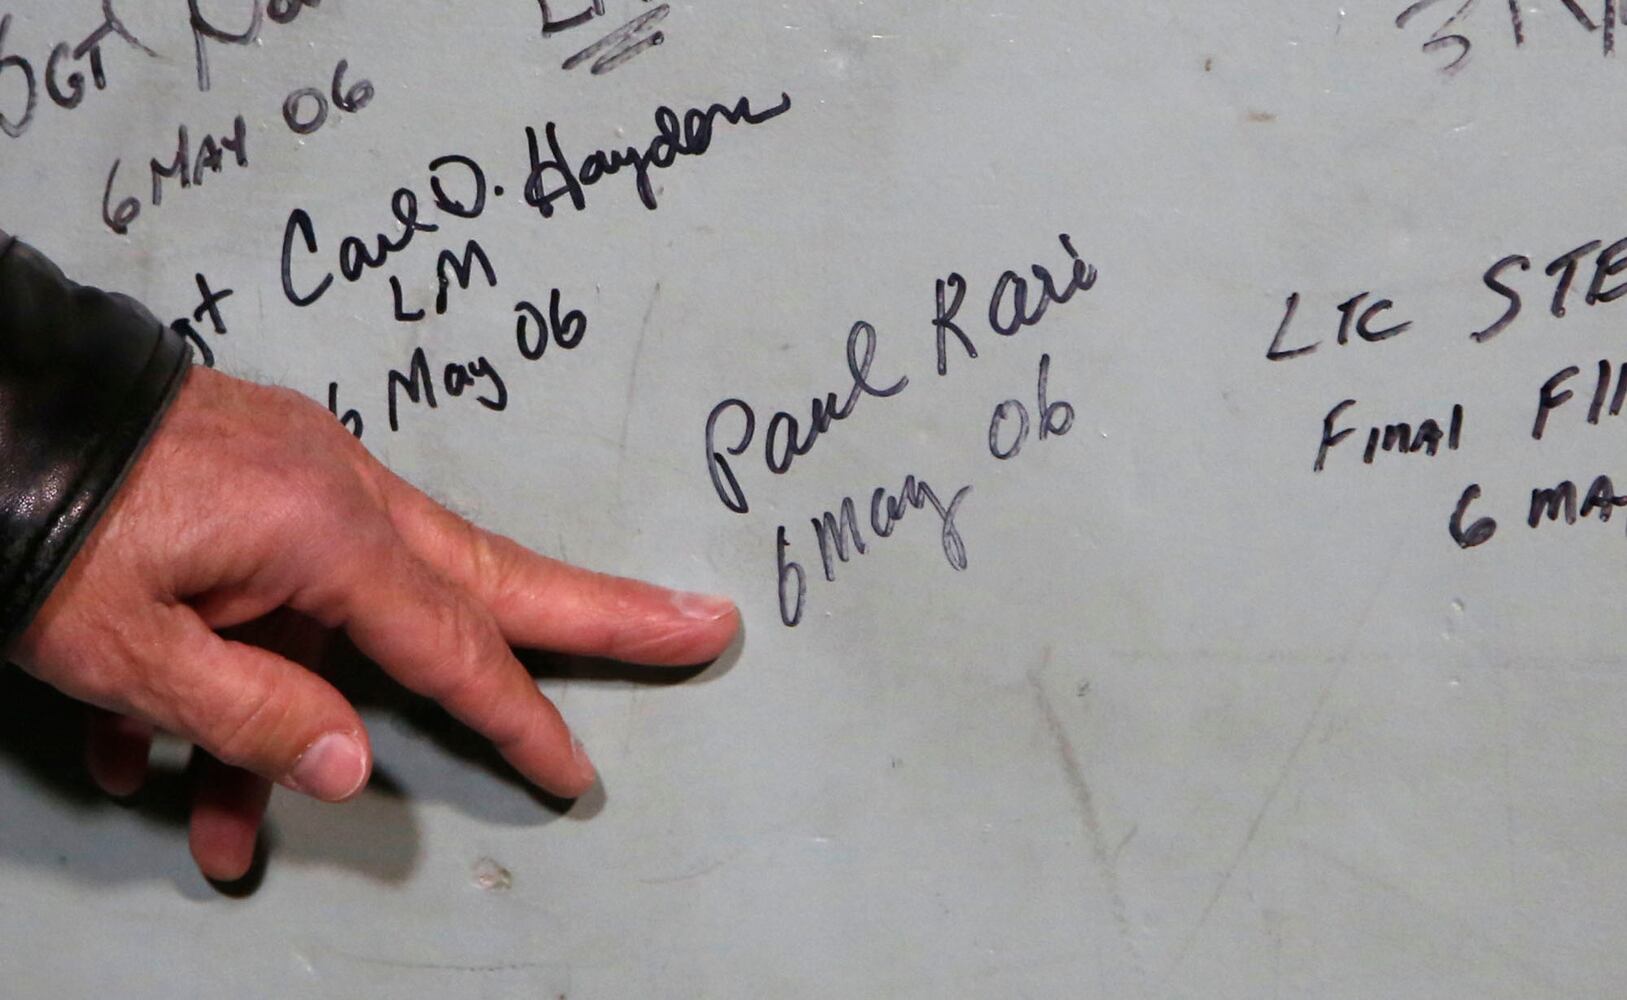 SGT
6 MAY 06
Carl D. Hayden
LM
6 May 06
Paul Kari
6 May 06
LTC STE
FINAL
6 MA